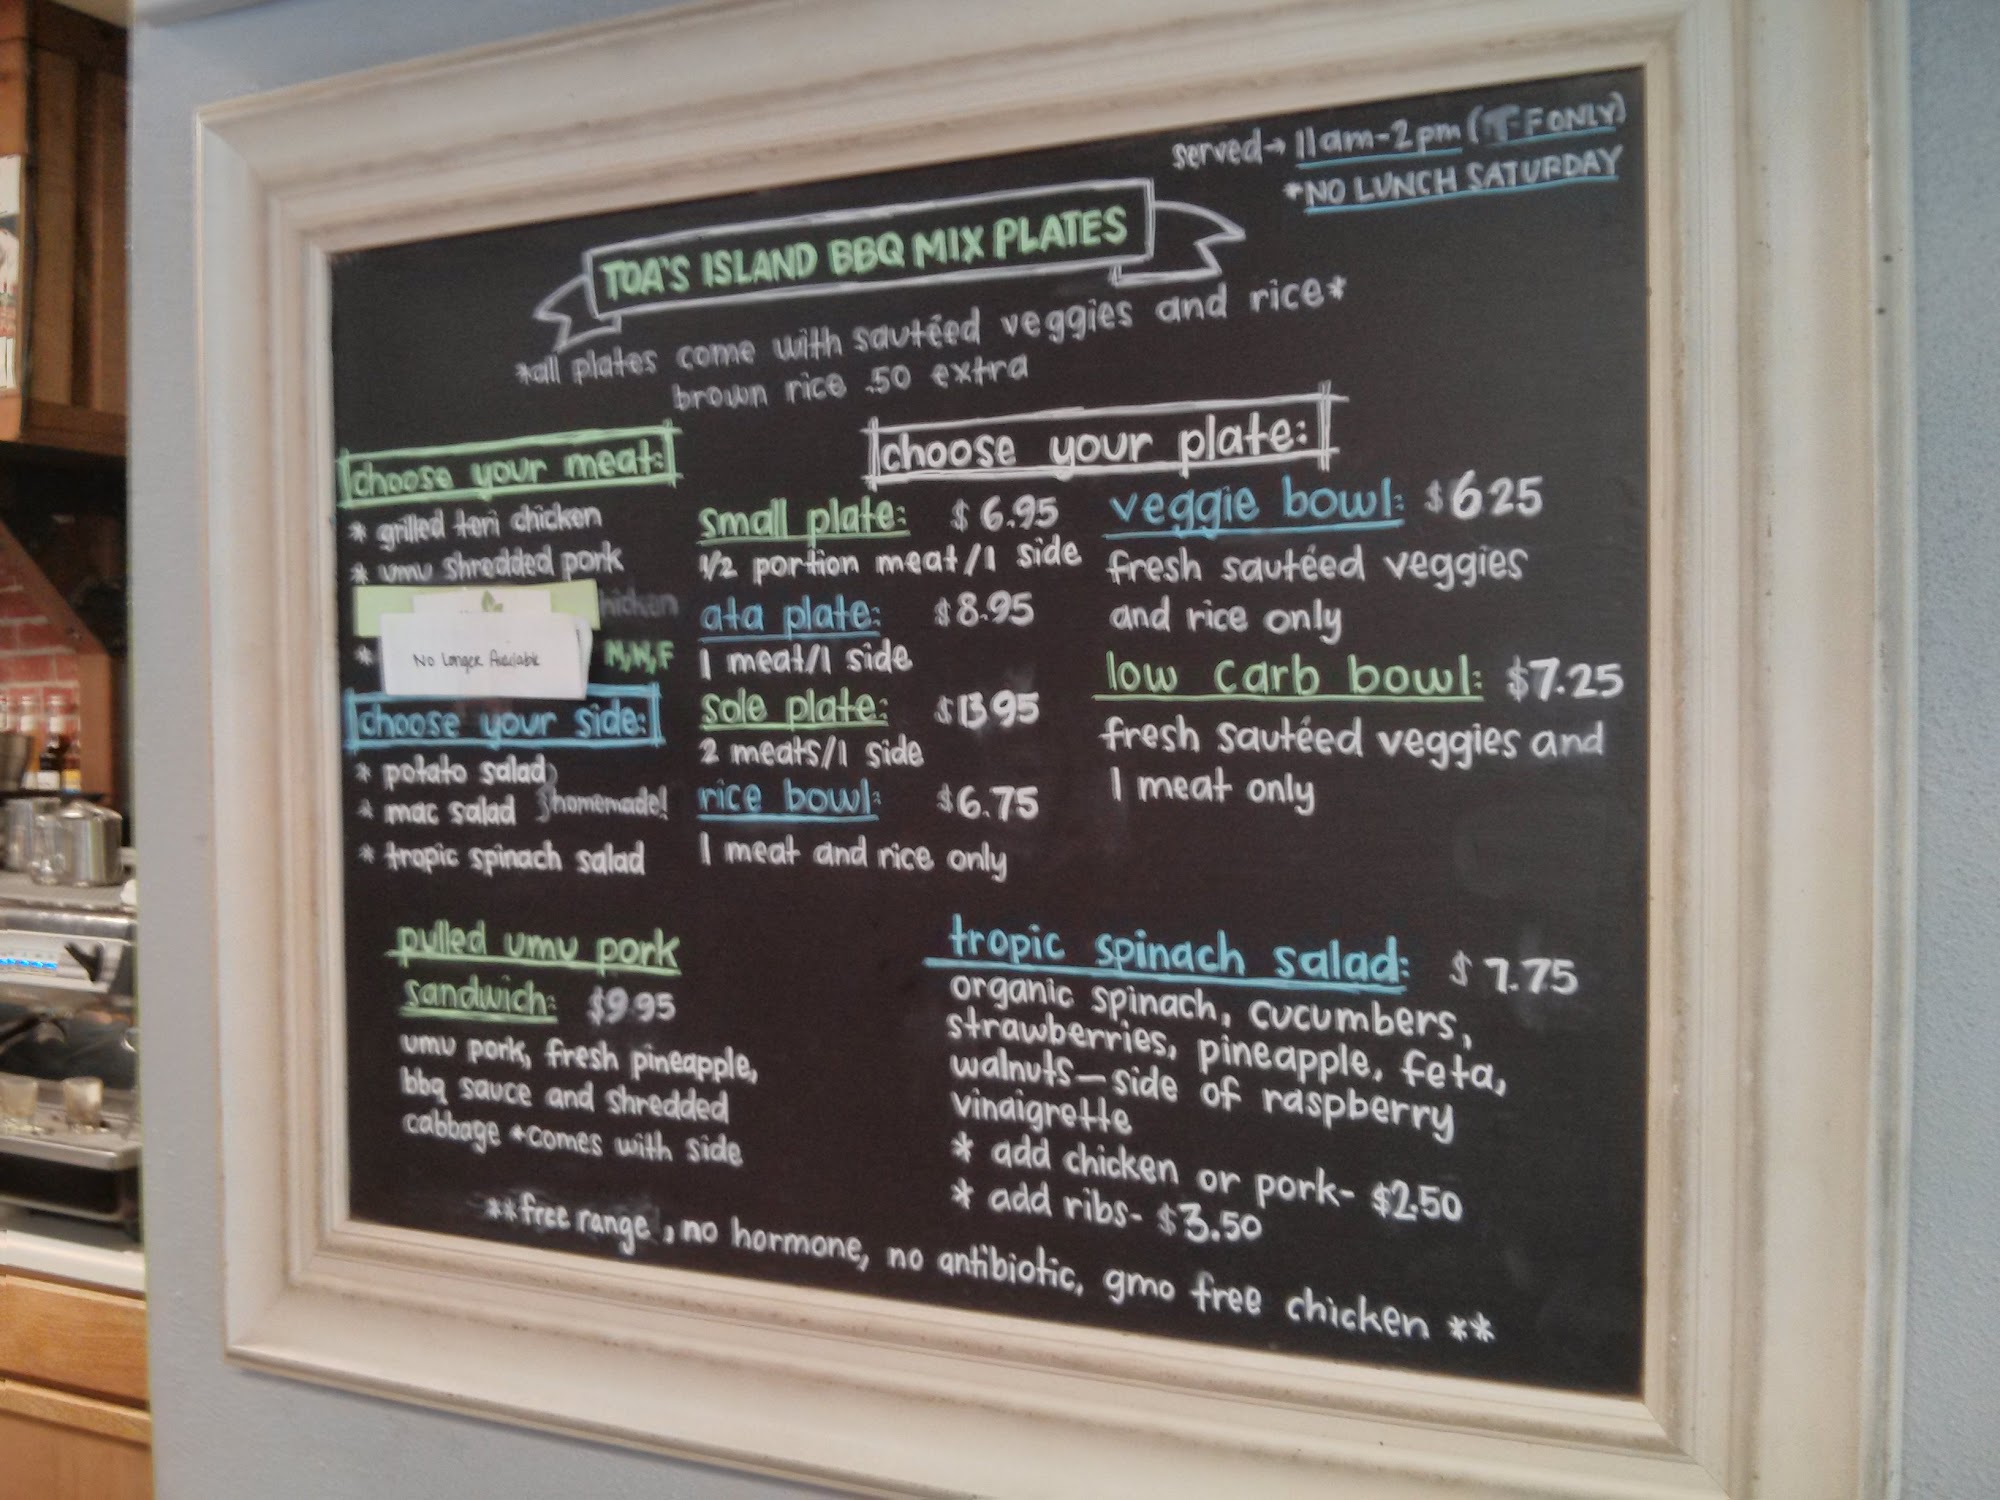 served→ 11am-2pm (T-F ONLY)
*NO LUNCH SATURDAY
TOA'S ISLAND BBQ MIX PLATES
*all plates come with sautéed veggies and rice*
brown rice .50 extra
choose your meat:
* grilled teri chicken
* umu shredded pork
hicken
* No Longer Available M,W,F
choose your side:
* potato salad
* mac salad }homemade!
* tropic spinach salad
choose your plate:
small plate: $6.95
1/2 portion meat/1 side
ata plate: $8.95
1 meat/1 side
sole plate: $13.95
2 meats/1 side
rice bowl: $6.75
1 meat and rice only
veggie bowl: $6.25
fresh sautéed veggies
and rice only
low carb bowl: $7.25
fresh sautéed veggies and
1 meat only
pulled umu pork
sandwich: $9.95
umu pork, fresh pineapple,
bbq sauce and shredded
cabbage *comes with side
tropic spinach salad: $7.75
organic spinach, cucumbers,
strawberries, pineapple, feta,
walnuts—side of raspberry
vinaigrette
* add chicken or pork- $2.50
* add ribs- $3.50
**free range, no hormone, no antibiotic, gmo free chicken **